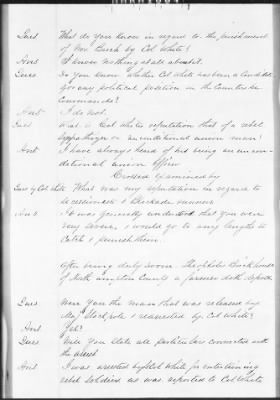 Ques What do you know in regard to the punishment
of Wm Burch by Col White?
Ans I know nothing at all about it.
Ques Do you know whether Col White has been a candidate
for any political position in the Counties he
Commands?
Ans I do not.
Ques What is Col White reputation that of a rebel
sympathizer or unconditional union man?
Ans I have always heard of his being an uncon-
ditional union Officer
Crossed examined by
Ques by Col White What was my reputation in regard
to secessionists & blockade runners
Ans It was generally understood that you were
very severe, & would go to any lengths to
Catch & punish them.
after being duly sworn. Theophilus
of North ampton County a farmer doth depose
Ques Were you the man that was released by
Maj Stockpole & rearrested by Col White?
Ans Yes?
Ques Will you state all particulars connected with
the arrest
Ans I was arrested by Col White for entertaining
rebel Soldiers as was reported to Col White